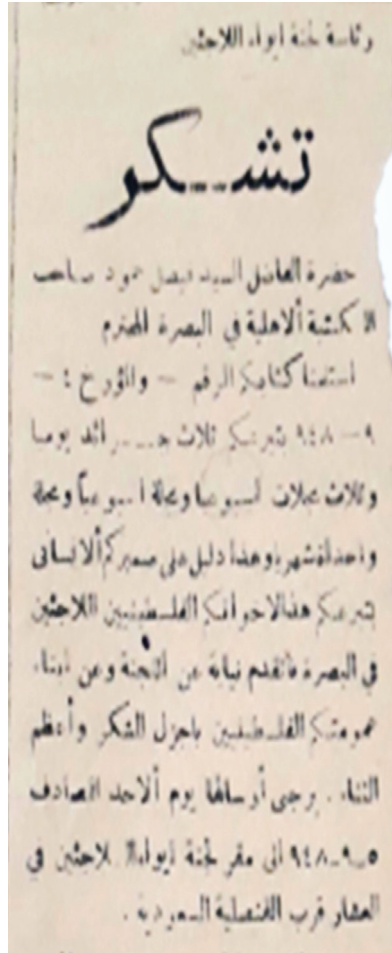 رئاسة لجنة ايواء اللاجئين
تشكر
حضرة الفاضل السيد فيصل حمود صاحب
الاكتبة ألاهلية في البصرة المحترم
استلمنا كتابكم الرقم — والمؤرخ ٤ —
٩ — ٩٤٨ تبرعكم ثلاث جـــرائد يوميا
وثلاث مجلات أسبوعيا ومجلة أسبوعياً ومجلة
واحدة شهريا وهذا دليل على ضميركم ألانسانى
بتبرعكم هذا لاخوانكم الفلسطينيين اللاجئين
في البصرة فاتقدم نيابة عن اللجنة وعن ابناء
عمومتكم الفلسطينيين باجزل الشكر وأعظم
الثناء . يرجى أرسالها يوم ألاحد المصادف
٥ـ٩ـ٩٤٨ الى مقر لجنة ايواء اللاجئين في
العشار قرب القنصلية السعودية .